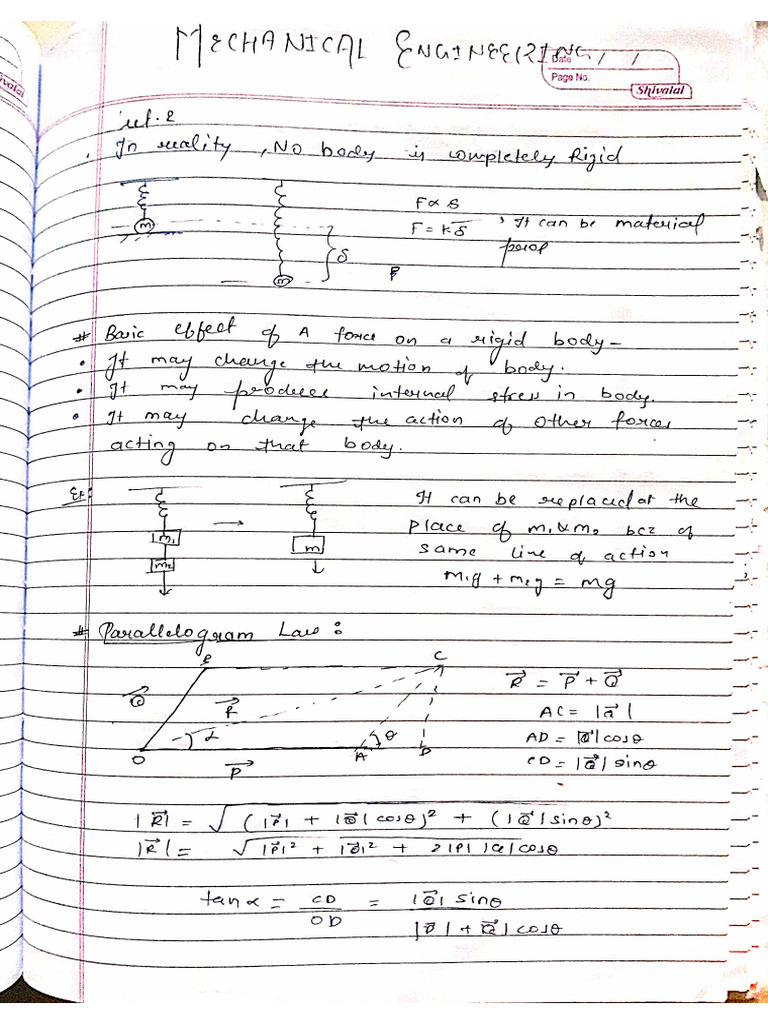 MECHANICAL ENGINEERING
Date / /
Page No.
Shivalal
Shivalal
In reality, No body is completely Rigid
F ∝ δ
F = kδ , It can be material
m
m
δ
F
# Basic effect of A force on a rigid body -
• It may change the motion of body.
• It may produces internal stress in body.
• It may change the action of other forces
acting on that body.
Ex:
m₁
m₂
m
It can be replaced at the
place of m₁ & m₂ bcz of
same line of action
m₁g + m₂g = mg
# Parallelogram Law :
B
C
Q
R
α
θ
O
P
A
D
R⃗ = P⃗ + Q⃗
AC = |Q⃗|
AD = |Q⃗|cosθ
CD = |Q⃗|sinθ
|R⃗| = √(|P⃗| + |Q⃗|cosθ)² + (|Q⃗|sinθ)²
|R⃗| = √|P⃗|² + |Q⃗|² + 2|P||Q|cosθ
tanα = CD/OD = |Q⃗|sinθ / |P⃗| + |Q⃗|cosθ